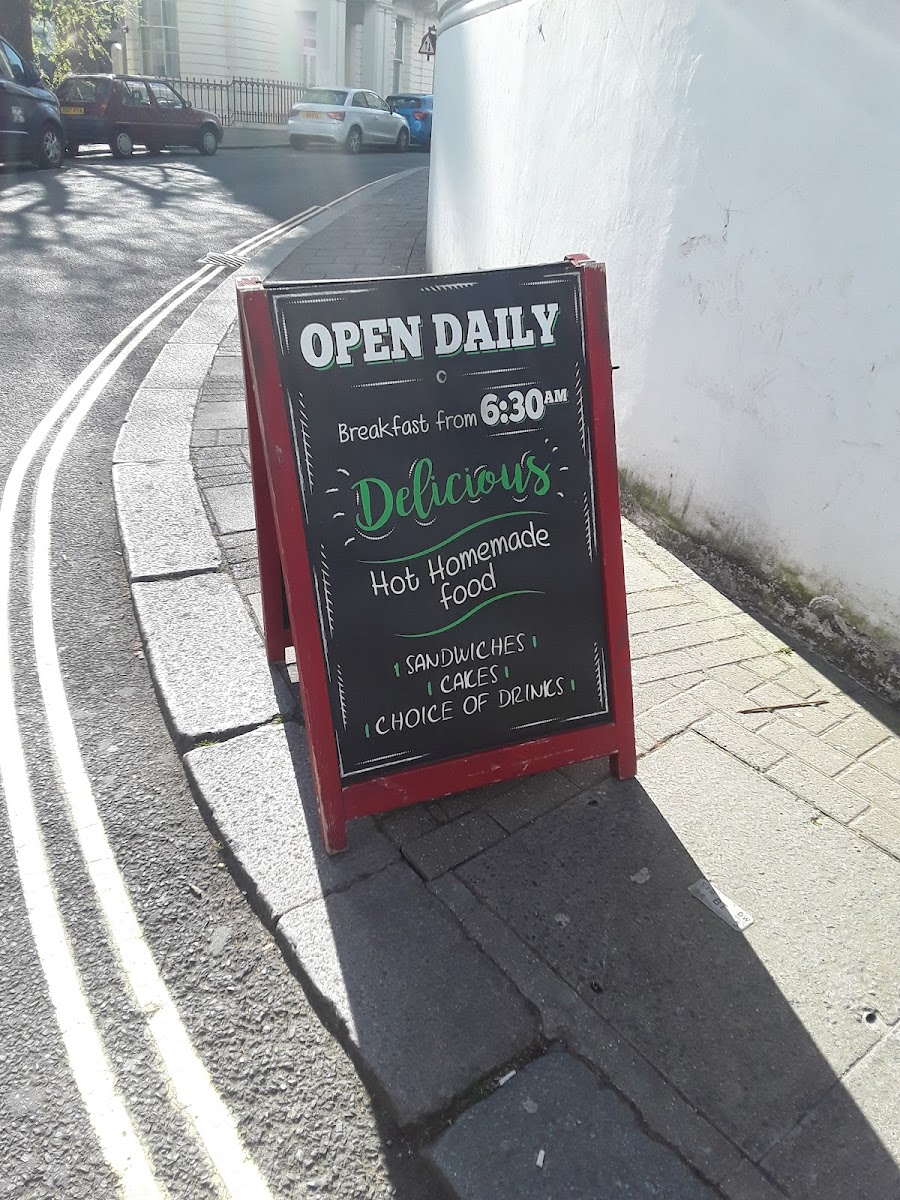 OPEN DAILY
Breakfast from 6:30AM
Delicious
Hot Homemade
food
SANDWICHES
CAKES
CHOICE OF DRINKS